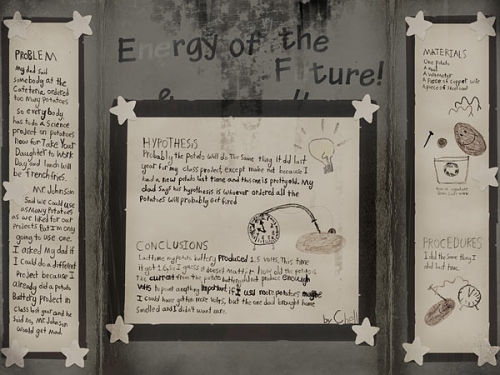 Energy of the
Future!
PROBLEM
My dad said
somebody at the
Cafeteria ordered
too many potatoes
So everybody
has to do a Science
project on potatoes
now for Take Your
Daughter to Work
Day and lunch will
be french fries.
Mr Johnson
Said we could use
as many potatoes
as we liked for our
Projects But I'm only
going to use one.
I asked my dad if
I could do a different
Project because I
already did a potato
Battery Project in
Class last year and he
said no, Mr Johnson
would get mad.
HYPOTHESIS
Probably the potato will do the same thing it did last
year for my class project, except maybe not because I
had a new potato last time and this one is pretty old. My
dad says his hypothesis is whoever ordered all the
Potatoes will probably get fired
CONCLUSIONS
Last time my potato battery produced 1.5 volts. This time
it got I guess it doesn't matter how old the potato is
The current from the potato battery didn't produce enough
volts to power anything important. If I used more potatoes maybe
I could have gotten more volts, but the one dad brought home
smelled and I didn't want more.
by Chell
MATERIALS
One potato
A nail
A voltmeter
A piece of copper wire
A piece of
PROCEDURES
I did the same thing I
did last time.